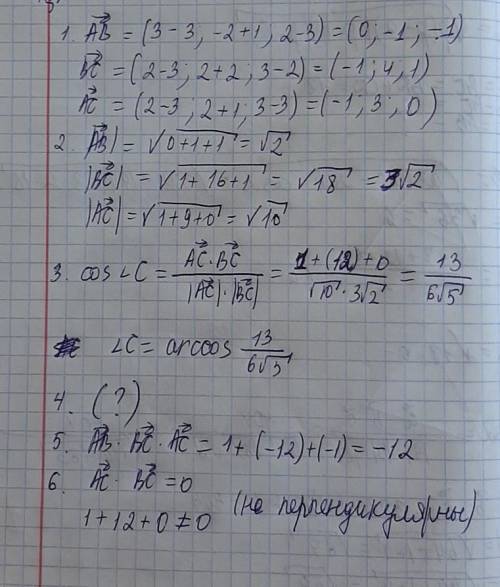 1. AB⃗ = (3-3; -2+1; 2-3) = (0; -1; -1)
BC⃗ = (2-3; 2+2; 3-2) = (-1; 4; 1)
AC⃗ = (2-3; 2+1; 3-3) = (-1; 3; 0)
2. |AB⃗| = √0+1+1 = √2
|BC⃗| = √1+16+1 = √18 = 3√2
|AC⃗| = √1+9+0 = √10
3. cos∠C = AC⃗·BC⃗ / |AC⃗|·|BC⃗| = 1+(12)+0 / √10·3√2 = 13 / 6√5
∠C = arccos 13 / 6√5
4. (?)
5. AB⃗·BC⃗·AC⃗ = 1+(-12)+(-1) = -12
6. AC⃗·BC⃗ = 0
1+12+0≠0 (не перпендикулярны)